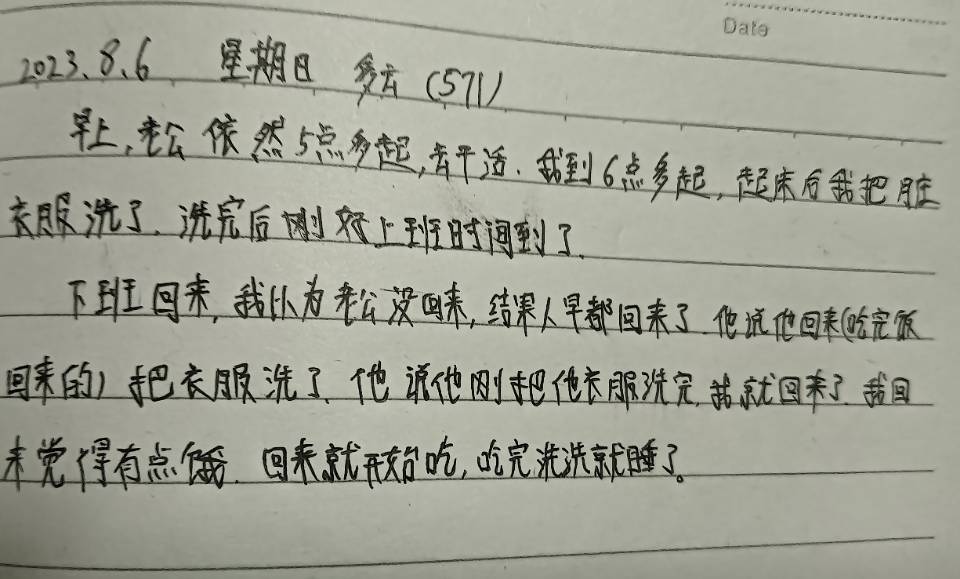 Date
2023.8.6 星期日 多云 (571)
早上,老公依然5点多起,去干活.我到6点多起,起床后我把脏
衣服洗了.洗完后刚好上班时间到了.
下班回来,我以为老公没回来,结果人早都回来了.他说他回来(吃完饭
回来的)把衣服洗了.他说他刚把他衣服洗完.我就回来了.我回
来觉得有点饿.回来就开始吃,吃完洗洗就睡了。